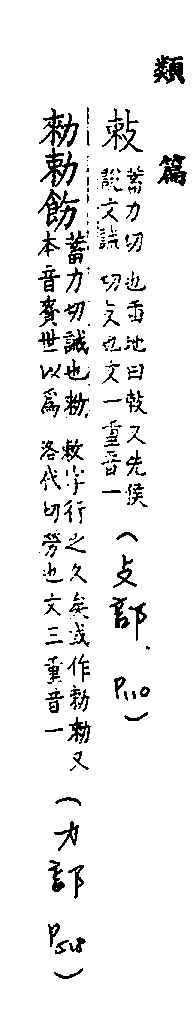 類篇
敕
蓄力切
說文誡
也臿地曰敕又先侯
切攴也文一重音一
(攴部.P110)
勑勅飭
蓄力切誡也勑
本音賚世以爲
敕字行之久矣或作勅勑又
洛代切勞也文三重音一
(力部 P518)